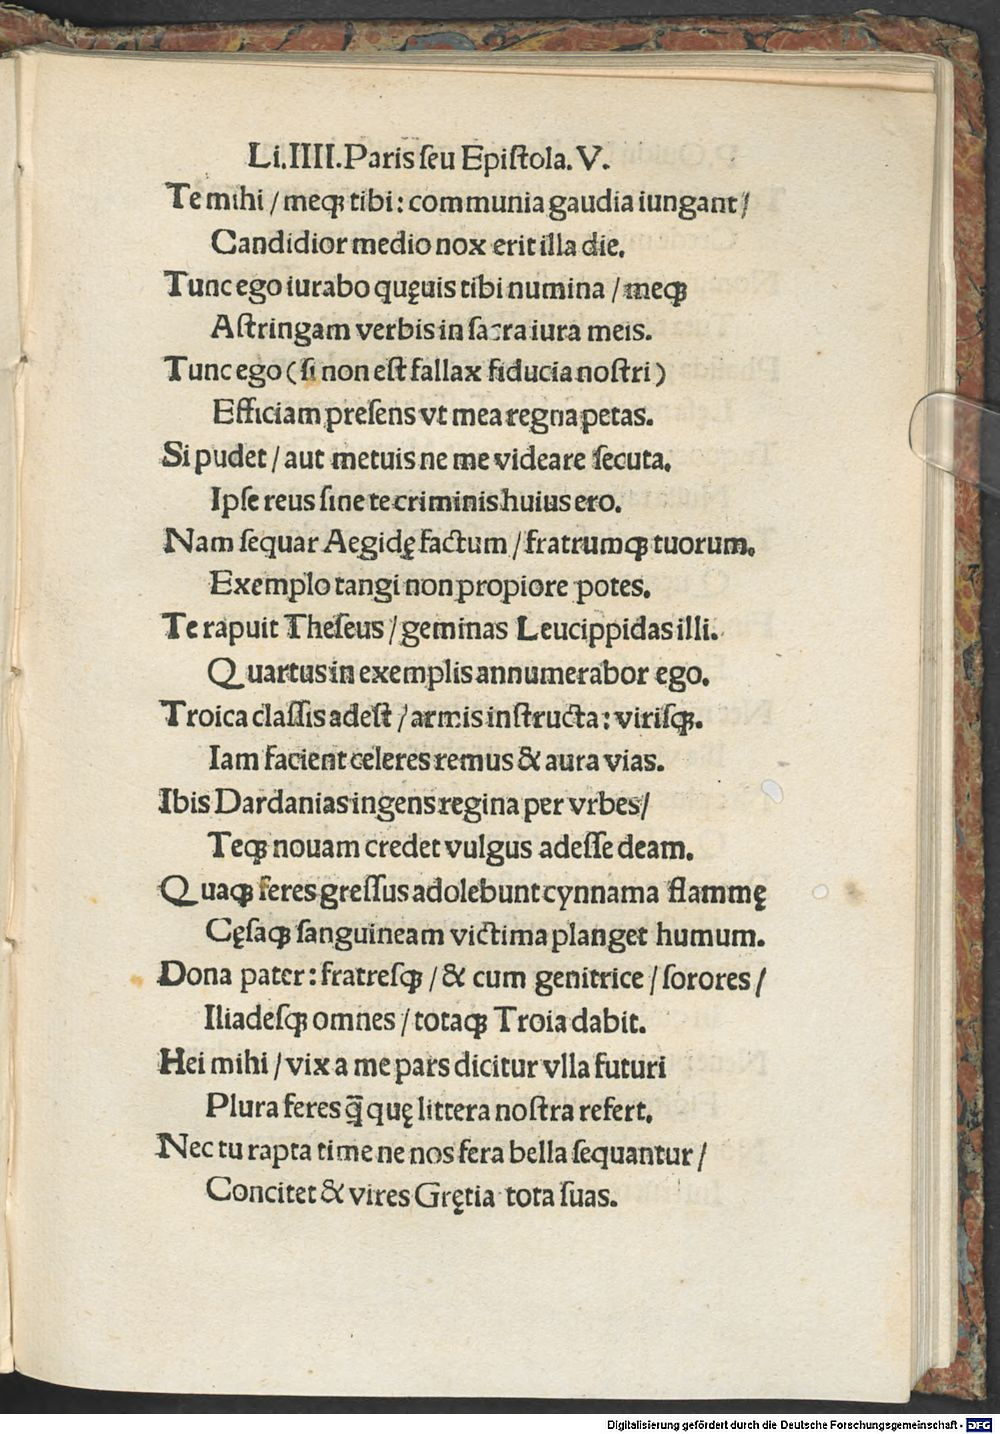 Li.IIII.Paris ſeu Epiſtola.V.
Te mihi / meqꝫ tibi: communia gaudia iungant /
Candidior medio nox erit illa die.
Tunc ego iurabo quęuis tibi numina / meqꝫ
Aſtringam verbis in ſacra iura meis.
Tunc ego (ſi non eſt fallax fiducia noſtri)
Efficiam preſens vt mea regna petas.
Si pudet / aut metuis ne me videare ſecuta.
Ipſe reus ſine te criminis huius ero.
Nam ſequar Aegidę factum / fratrumqꝫ tuorum.
Exemplo tangi non propiore potes.
Te rapuit Theſeus / geminas Leucippidas illi.
Quartus in exemplis annumerabor ego.
Troica claſſis adeſt / armis inſtructa: viriſqꝫ.
Iam facient celeres remus & aura vias.
Ibis Dardanias ingens regina per vrbes /
Teqꝫ nouam credet vulgus adeſſe deam.
Quaqꝫ feres greſſus adolebunt cynnama flammę
Cęſaqꝫ ſanguineam victima planget humum.
Dona pater: fratreſqꝫ / & cum genitrice / ſorores /
Iliadeſqꝫ omnes / totaqꝫ Troia dabit.
Hei mihi / vix a me pars dicitur vlla futuri
Plura feres q̄ quę littera noſtra refert.
Nec tu rapta time ne nos fera bella ſequantur /
Concitet & vires Grętia tota ſuas.
Digitalisierung gefördert durch die Deutsche Forschungsgemeinschaft - DFG